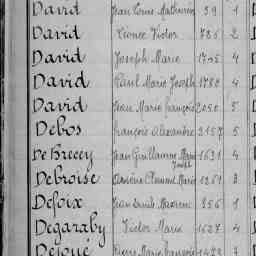 David Jean Louis Mathurin 39 1
David Léonce Victor 786 2
David Joseph Marie 1745 4
David Paul Marie Joseph 1780 4
David Jean Marie françois 2050 5
Debos françois Alexandre 2157 5
De Brecey Jean Guillaume Marie Joseph 1631 4
Debroise Clément Marie 1261 3
Defoix Jean Louis 356 1
Degaraby Victor Marie 1627 4
Dejoué Pierre Marie françois